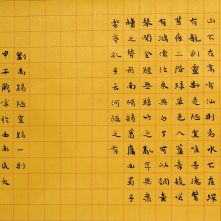 山不在高有仙則名水不在深
有龍則靈斯是陋室惟吾德馨
苔痕上階綠草色入簾青談笑
有鴻儒往來無白丁可以調素
琴閱金經無絲竹之亂耳無案
牘之勞形南陽諸葛廬西蜀子
雲亭孔子云何陋之有
劉禹錫陋室銘一則
甲午歲於西南民大